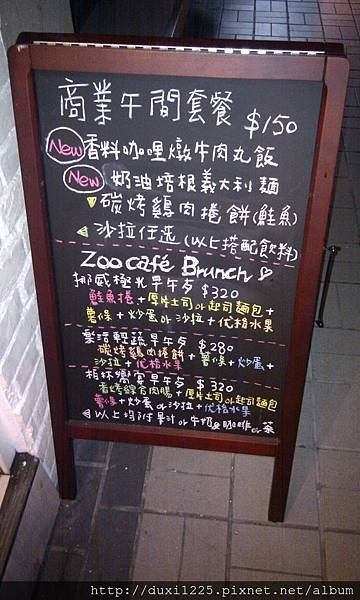 商業午間套餐 $150
New 香料咖哩燉牛肉丸飯
New 奶油培根義大利麵
碳烤雞肉捲餅(鮭魚)
沙拉任选(以上搭配飲料)
Zoo café Brunch
挪威極光早午歺 $320
鮭魚捲+厚片土司or起司麵包+
薯條+炒蛋or沙拉+优格水果
樂活輕蔬早午歺 $280
碳烤雞肉捲餅+薯條+炒蛋+
沙拉+优格水果
柏林饗宴早午歺 $320
香烤綜合肉腸+厚片土司or起司麵包
薯條+炒蛋or沙拉+优格水果
以上均附果汁or牛奶or咖啡or茶
http://duxi1225.pixnet.net/album